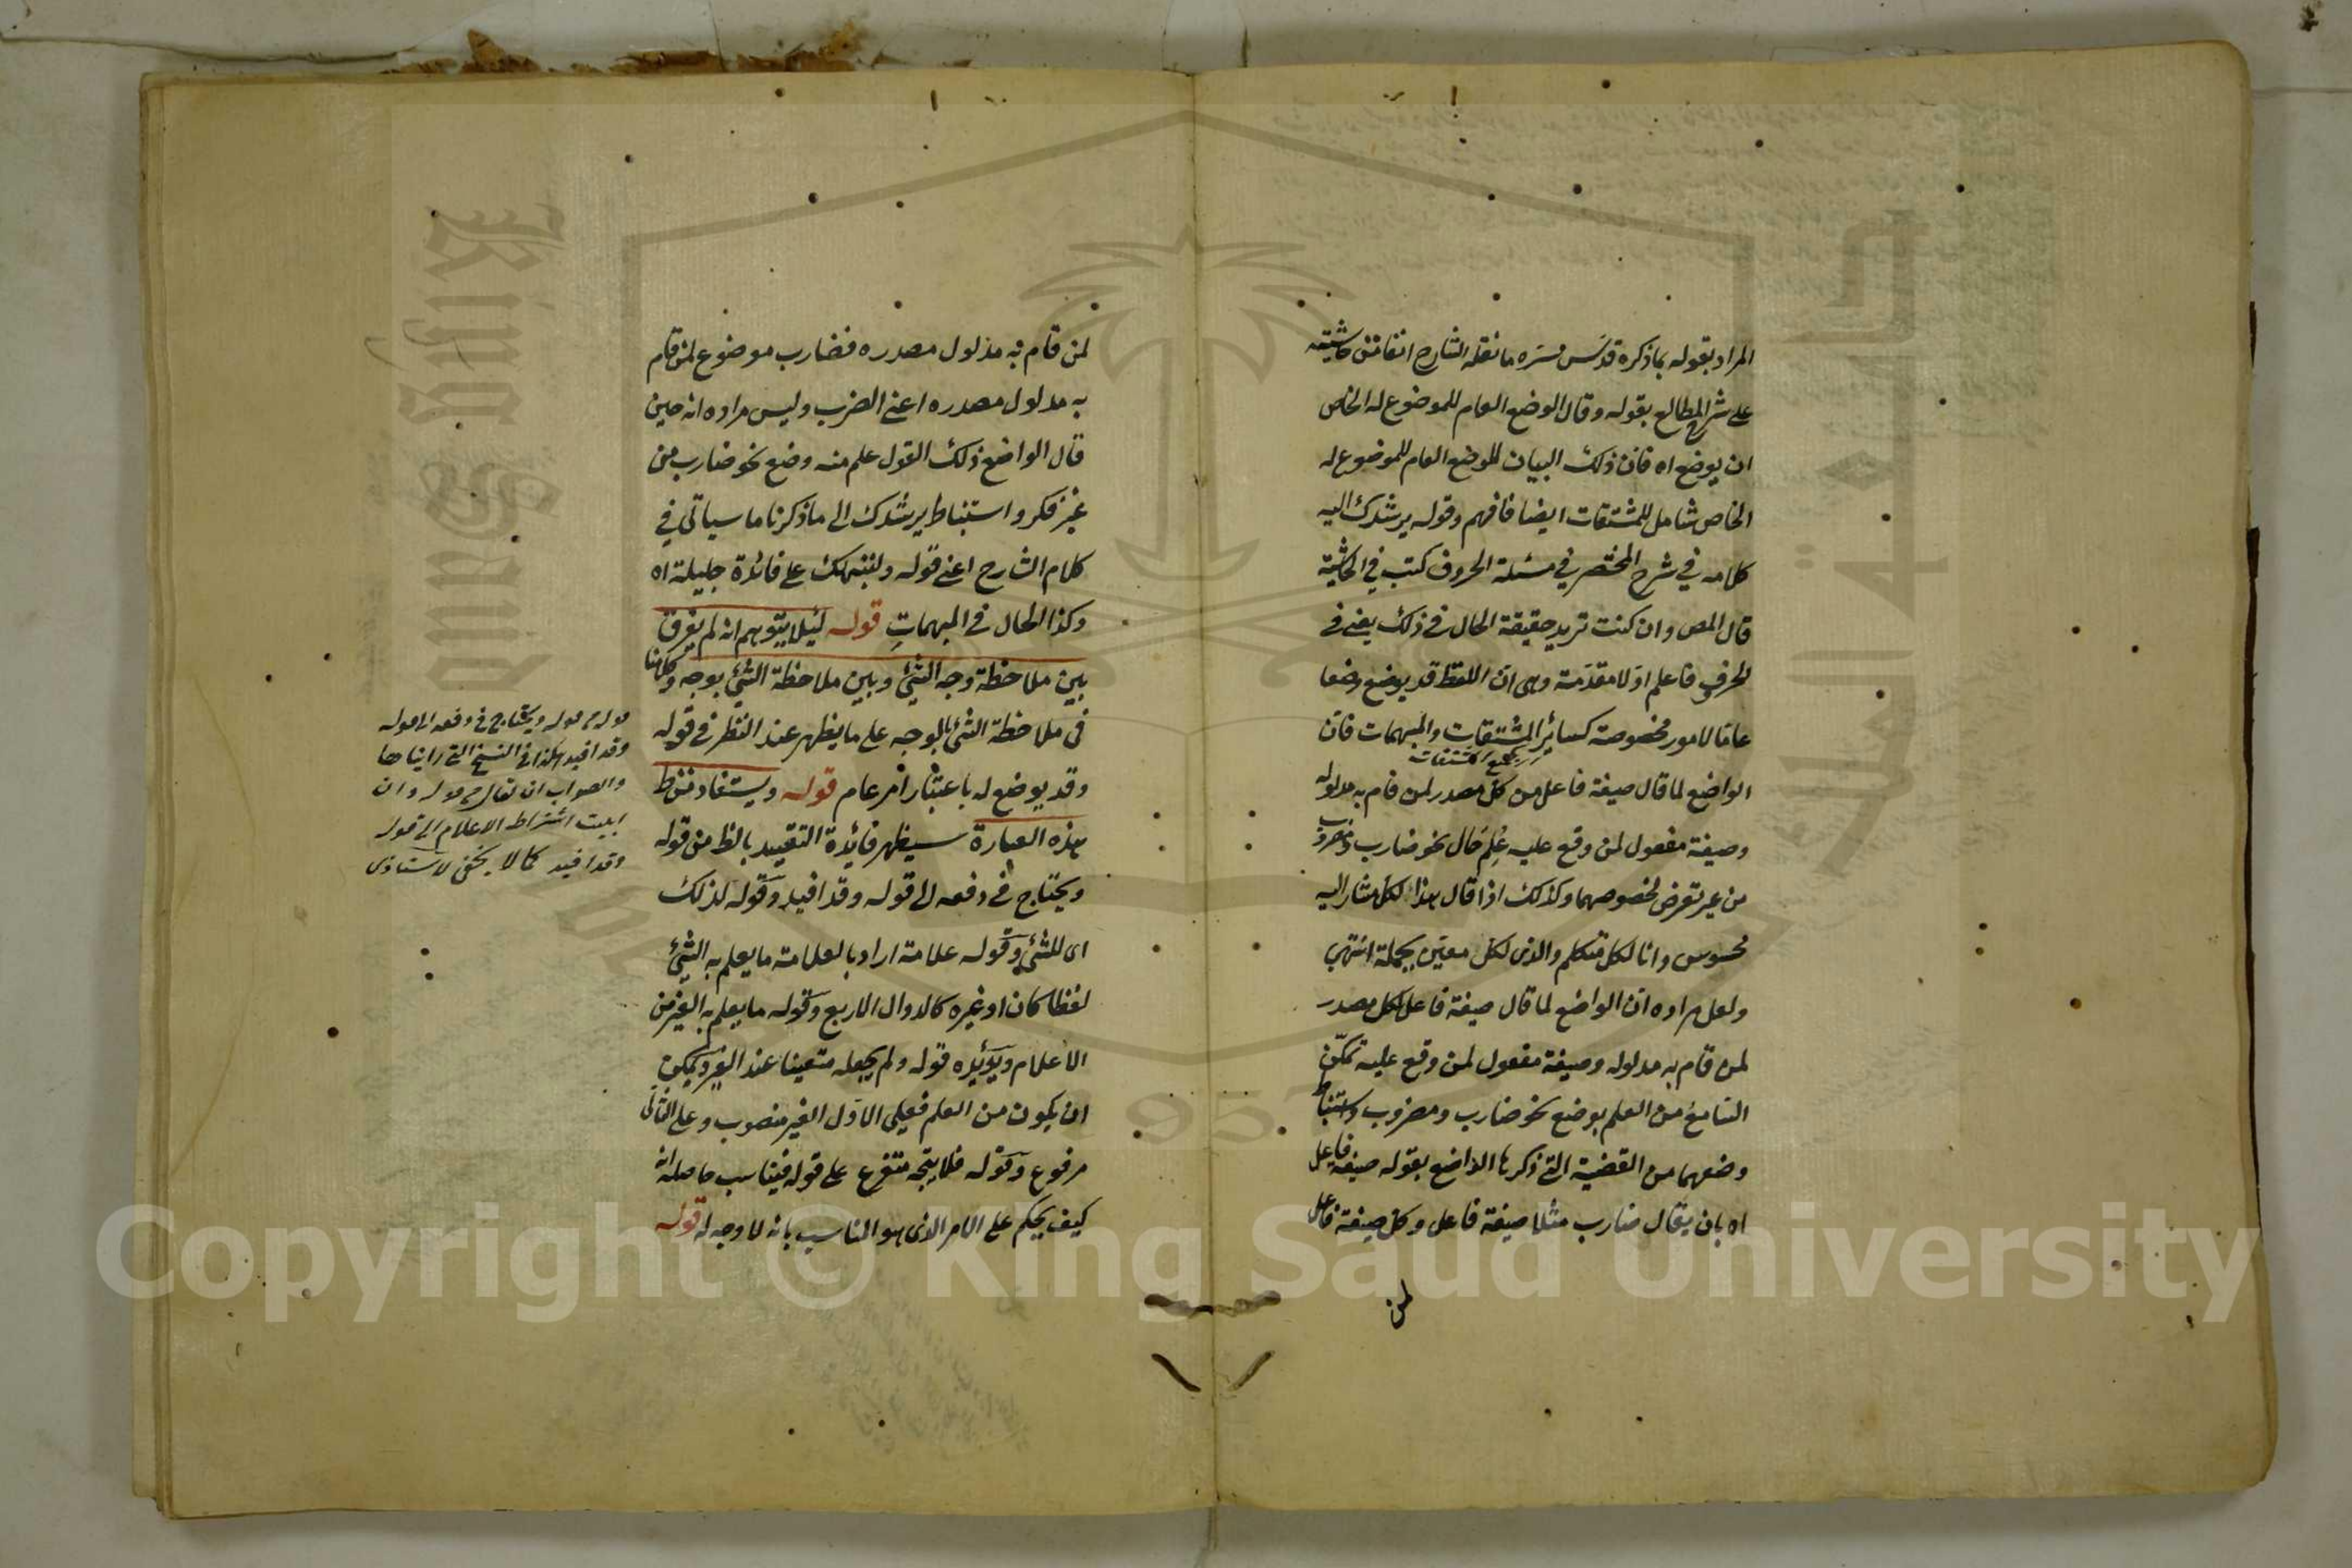 المراد بقوله بما ذكره قدس سره ما نقله الشارح انفا من حاشيته
على شرح المطالع بقوله وقال الوضع العام للموضوع له الخاص
ان يوضع اه فان ذلك البيان للوضع العام للموضوع له
الخاص شامل للمشتقات ايضا فافهم وقوله يرشدك اليه
كلامه في شرح المختصر في مسئلة الحروف كتب في الحاشية
قال المص وان كنت تريد حقيقة الحال في ذلك يعنى في
الحرف فاعلم اولا مقدمة وهى ان اللفظ قد يوضع وضعا
عاما لامور مخصوصة كسائر المشتقات والمبهمات فان
الواضع لما قال صيغة فاعل من كل مصدر لمن قام به مدلوله
وصيغة مفعول لمن وقع عليه علم حال نحو ضارب ومضروب
من غير تعرض لخصوصهما وكذلك اذا قال هذا لكل مشار اليه
محسوس وانا لكل متكلم والذى لكل معين بجملة انتهى
ولعل مراده ان الواضع لما قال صيغة فاعل لكل مصدر
لمن قام به مدلوله وصيغة مفعول لمن وقع عليه تمكن
السامع من العلم بوضع نحو ضارب ومضروب واستنباط
وضعهما من القضية التى ذكرها الواضع بقوله صيغة فاعل
اه بان يقال ضارب مثلا صيغة فاعل وكل صيغة فاعل
لمن
لمن قام به مدلول مصدره فضارب موضوع لمن قام
به مدلول مصدره اعنى الضرب وليس مراده انه حين
قال الواضع ذلك القول علم منه وضع نحو ضارب من
غير فكر واستنباط يرشدك الى ما ذكرنا ما سياتى في
كلام الشارح اعنى قوله ولننبهك على فائدة جليلة اه
وكذا الحال في المبهمات قوله لئلا يتوهم انه لم يفرق
بين ملاحظة وجه الشئ وبين ملاحظة الشئ بوجه وكلامنا
في ملاحظة الشئ بالوجه على ما يظهر عند النظر في قوله
وقد يوضع له باعتبار امر عام قوله ويستفاد من ظ
هذه العبارة سيظهر فائدة التقييد بالظ من قوله
ويحتاج في دفعه الى قوله وقد افيد وقوله لذلك
اى للشئ وقوله علامة اراد بالعلامة ما يعلم به الشئ
لفظا كان او غيره كالدوال الاربع وقوله ما يعلم به الغير من
الاعلام ويؤيده قوله ولم يجعله متعينا عند الغير ويمكن
ان يكون من العلم فعلى الاول الغير منصوب وعلى الثانى
مرفوع وقوله فلا يتجه متفرع على قوله فيناسب حاصله انه
كيف يحكم على الامر الذى هو المناسب بانه لا وجه له قوله
قوله ويحتاج في دفعه الى قوله
وقد افيد هكذا في النسخ التى رايناها
والصواب ان يقال قوله وان
اشتراط الاعلام الى قوله
وقد افيد كما لا يخفى لاستاذى
Copyright © King Saud University
King Saud
جامعة الملك سعود
1957